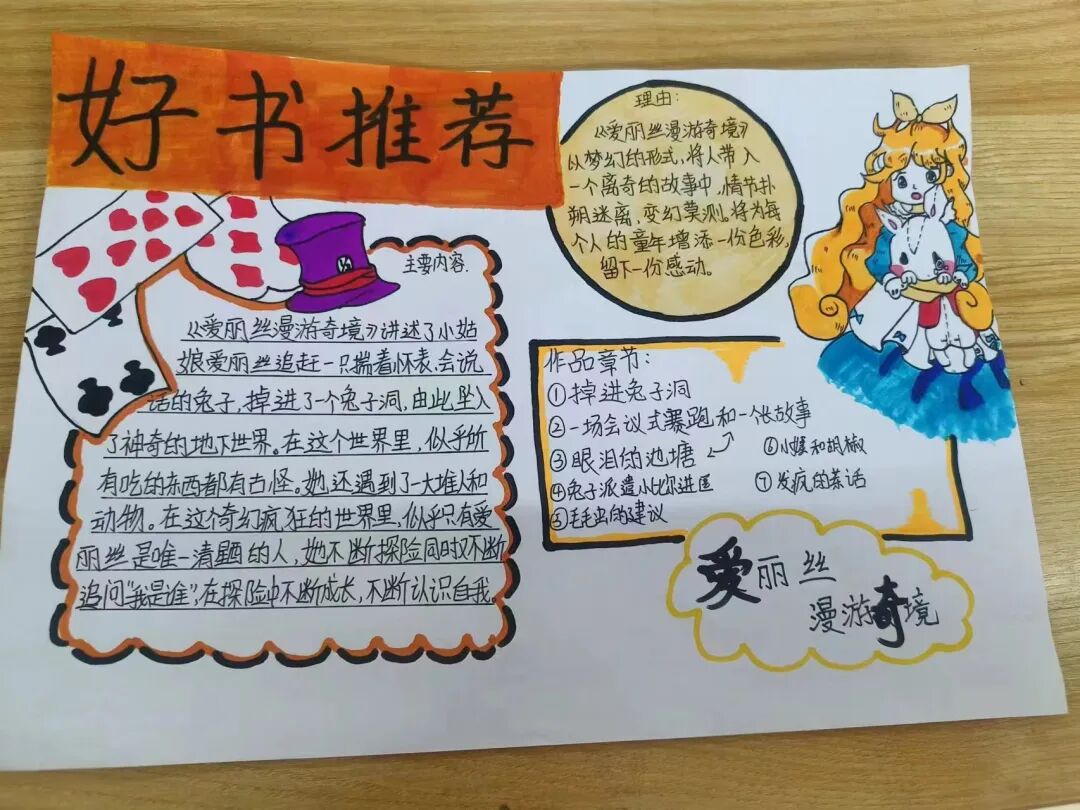 好书推荐
理由：
《爱丽丝漫游奇境》
以梦幻的形式，将人带入
一个离奇的故事中，情节扑
朔迷离，变幻莫测。将为每
个人的童年增添一份色彩，
留下一份感动。
主要内容．
《爱丽丝漫游奇境》讲述了小姑
娘爱丽丝追赶一只揣着怀表、会说
话的兔子，掉进了一个兔子洞，由此坠入
了神奇的地下世界。在这个世界里，似乎所
有吃的东西都有古怪。她还遇到了一大堆人和
动物。在这个奇幻疯狂的世界里，似乎只有爱
丽丝是唯一清醒的人，她不断探险同时又不断
追问“我是谁”，在探险中不断成长，不断认识自我。
作品章节：
①掉进兔子洞
②一场会议式赛跑和一个长故事
③眼泪的池塘
④兔子派遣小比尔进屋
⑤毛毛虫的建议
⑥小猪和胡椒
⑦发疯的茶话
爱丽丝
漫游奇境